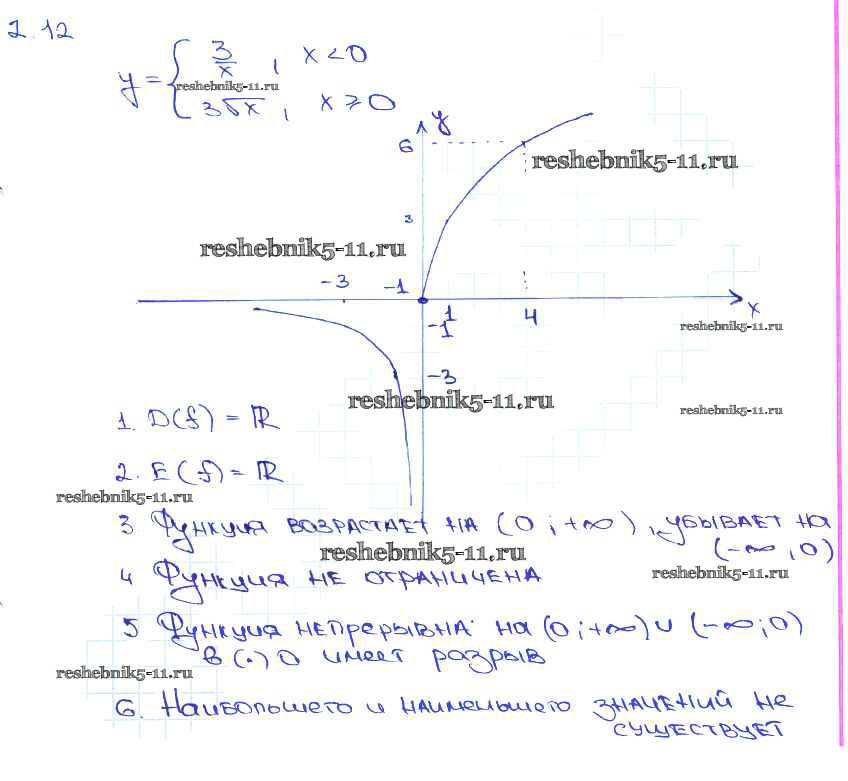 2.12
y = { 3/x , x < 0
reshebnik5-11.ru
3√x , x ⩾ 0
y
6
reshebnik5-11.ru
3
reshebnik5-11.ru
-3 -1
1 4 x
-1
reshebnik5-11.ru
-3
reshebnik5-11.ru
reshebnik5-11.ru
1. D(f) = ℝ
2. E(f) = ℝ
reshebnik5-11.ru
3 Функция возрастает на (0 ; +∞) , убывает на
(-∞ , 0)
reshebnik5-11.ru
4 Функция не ограничена
reshebnik5-11.ru
5 Функция непрерывна на (0 ; +∞) ∪ (-∞ ; 0)
в (·) 0 имеет разрыв
reshebnik5-11.ru
6. Наибольшего и наименьшего значений не
существует